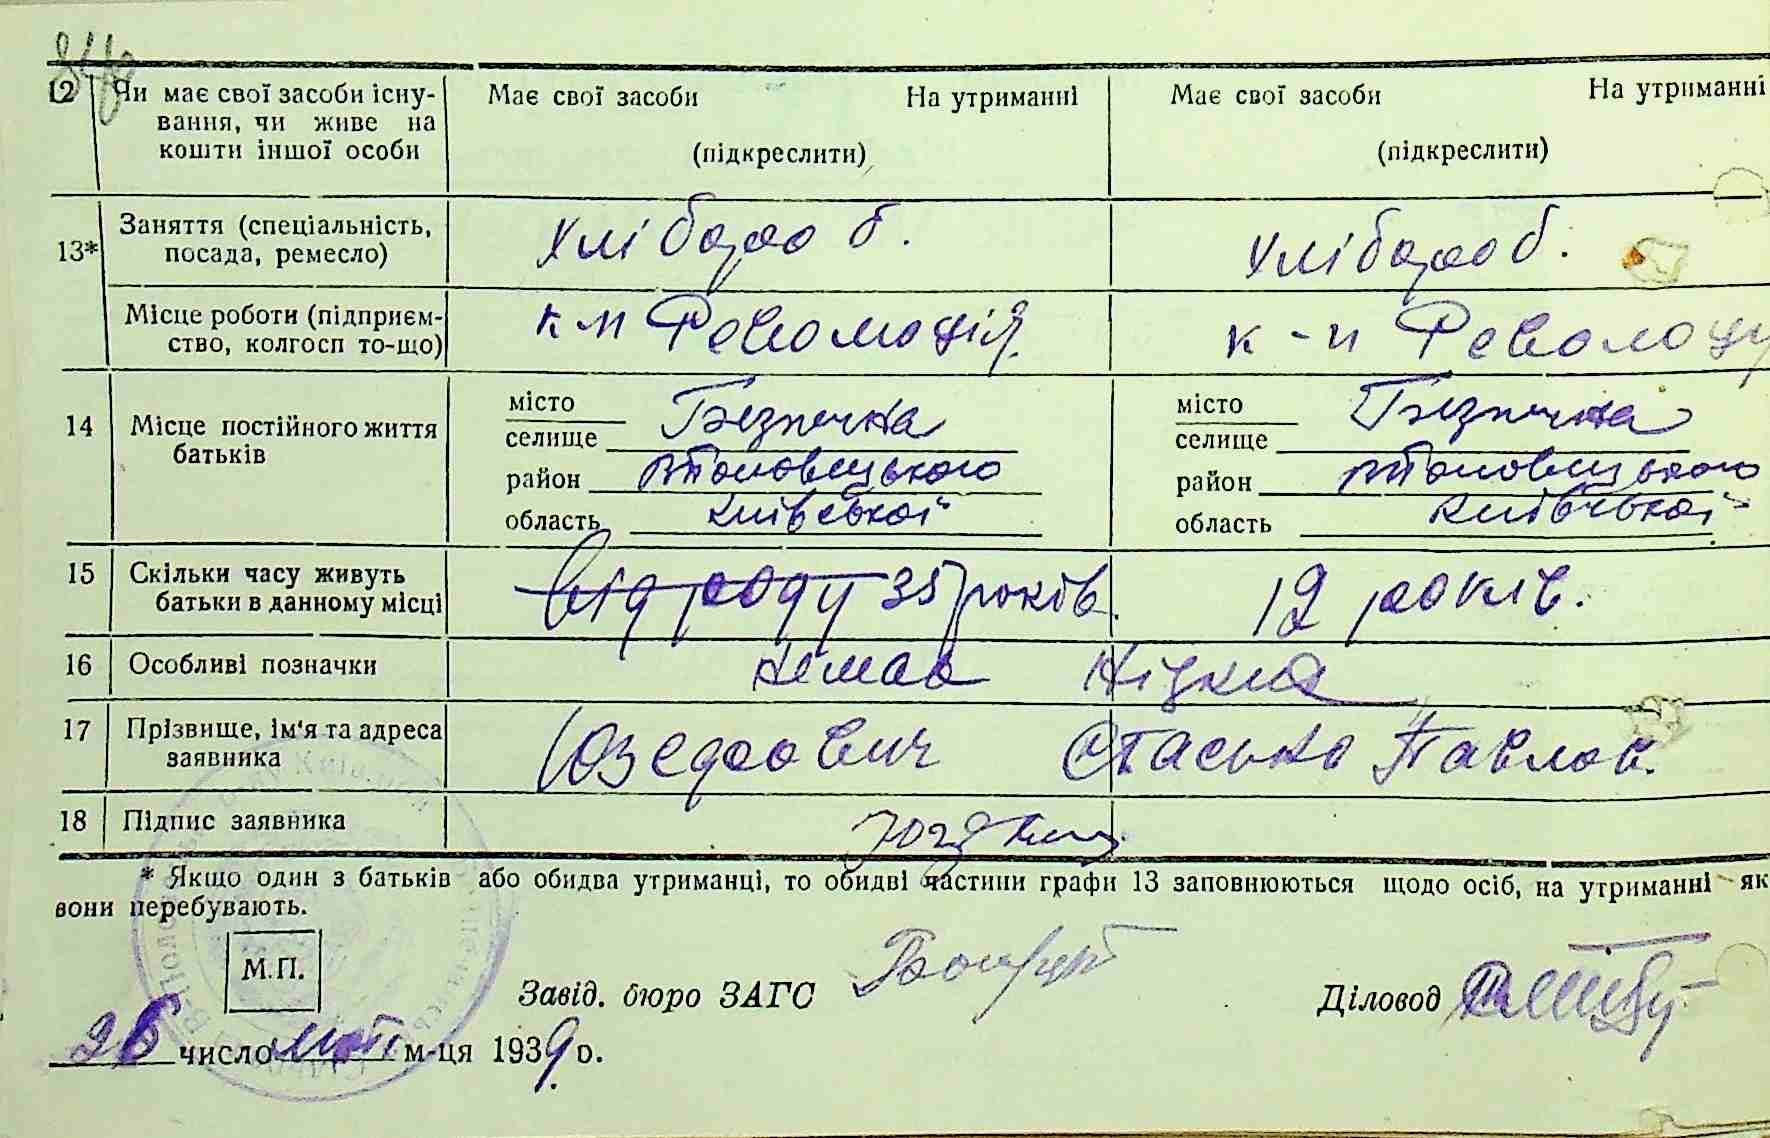 12 Чи має свої засоби існу-
вання, чи живе на
кошти іншої особи
Має свої засоби На утриманні
(підкреслити)
Має свої засоби На утриманні
(підкреслити)
13* Заняття (спеціальність,
посада, ремесло)
хлібороб.
хлібороб.
Місце роботи (підприєм-
ство, колгосп то-що)
к-п Революція.
к-п Революці
14 Місце постійного життя
батьків
місто
селище Безпечна
район
область Київської
місто
селище Безпечна
район
область Київської
15 Скільки часу живуть
батьки в данному місці
від роду 35 років.
12 років.
16 Особливі позначки
немає
17 Прізвище, ім'я та адреса
заявника
Юзефович Стасько Павлов.
18 Підпис заявника
* Якщо один з батьків або обидва утриманці, то обидві частини графи 13 заповнюються щодо осіб, на утриманні як
вони перебувають.
М.П.
Завід. бюро ЗАГС
Діловод
26 число м-ця 1939 р.